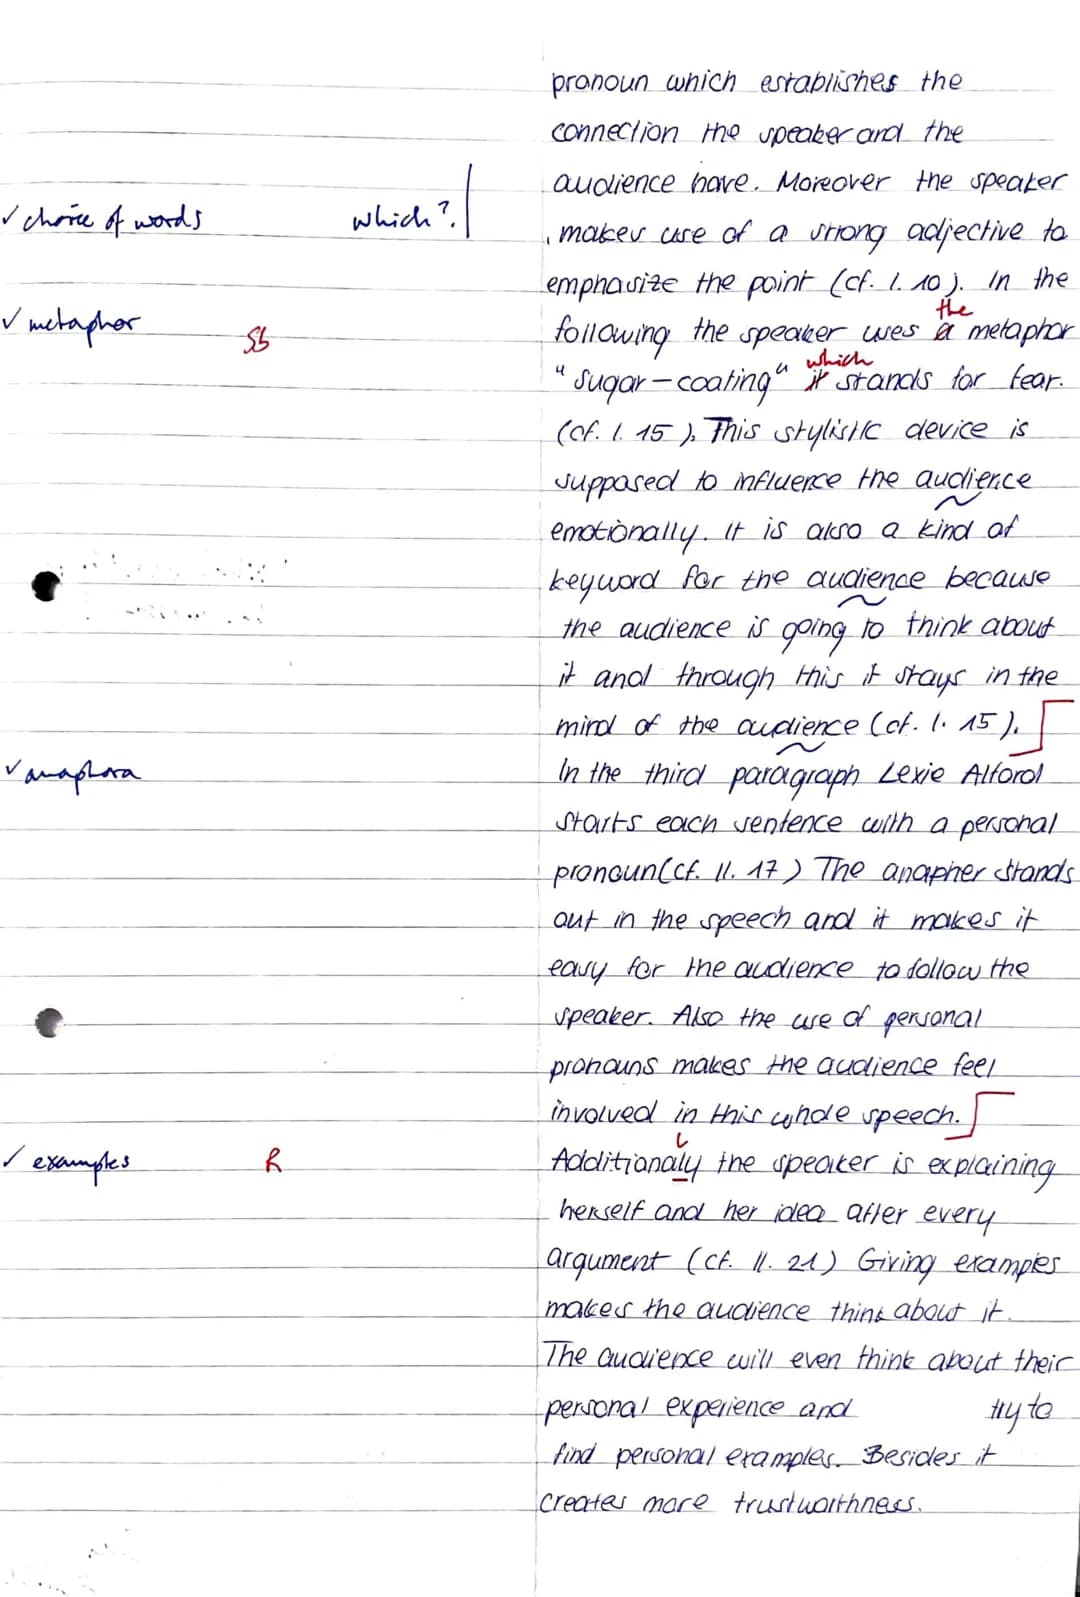 pronoun which establishes the
connection the speaker and the
audience have. Moreover the speaker
✓ choice of words which?
makes use of a strong adjective to
emphasize the point (cf. l. 10). In the
the
✓ metaphor Sb
following the speaker uses a metaphor
which
"sugar-coating" it stands for fear.
(cf. l. 15). This stylistic device is
supposed to influence the audience
emotionally. It is also a kind of
keyword for the audience because
the audience is going to think about
it and through this it stays in the
mind of the audience (cf. l. 15).
✓ anaphora
In the third paragraph Lexie Alford
starts each sentence with a personal
pronoun (cf. ll. 17) The anapher stands
out in the speech and it makes it
easy for the audience to follow the
speaker. Also the use of personal
pronouns makes the audience feel
involved in this whole speech.
✓ examples R
l
Additionaly the speaker is explaining
herself and her idea after every
argument (cf. ll. 21) Giving examples
makes the audience think about it.
The audience will even think about their
personal experience and try to
find personal examples. Besides it
creates more trustworthness.